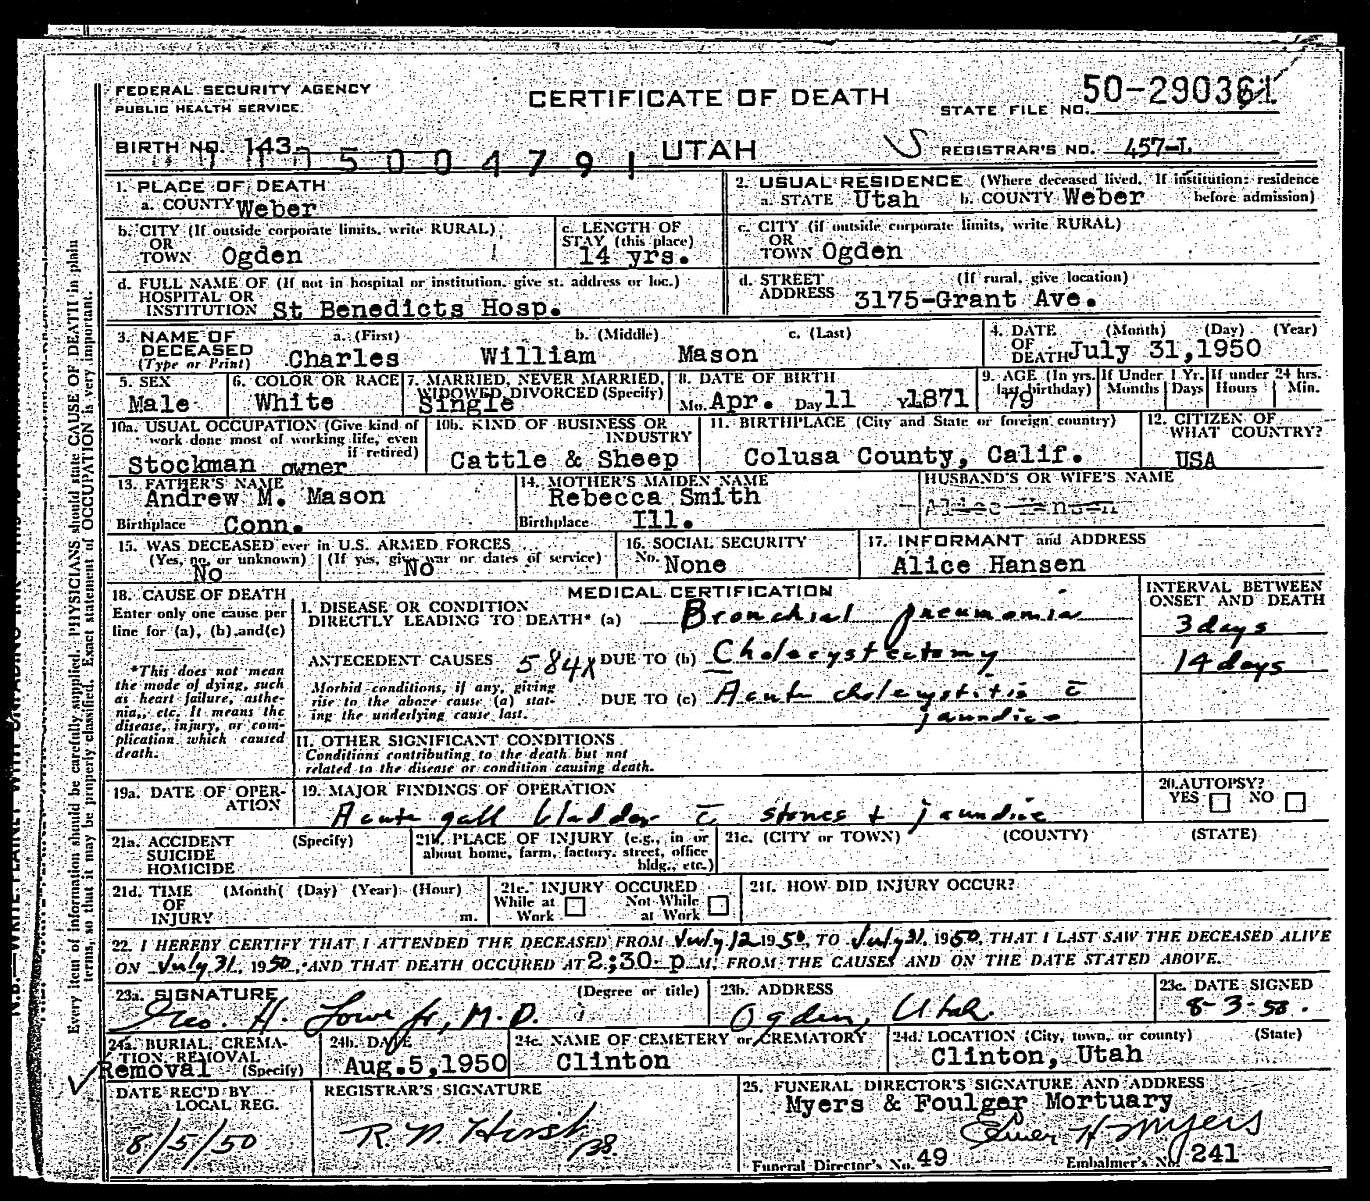 FEDERAL SECURITY AGENCY
PUBLIC HEALTH SERVICE
CERTIFICATE OF DEATH
STATE FILE NO. 50-290361
BIRTH NO. 143
500479
UTAH
REGISTRAR'S NO. 457-L
1. PLACE OF DEATH
a. COUNTY Weber
2. USUAL RESIDENCE (Where deceased lived. If institution: residence before admission)
a. STATE Utah b. COUNTY Weber
b. CITY (If outside corporate limits, write RURAL)
OR
TOWN Ogden
c. LENGTH OF
STAY (this place)
14 yrs.
c. CITY (if outside corporate limits, write RURAL)
OR
TOWN Ogden
d. FULL NAME OF (If not in hospital or institution, give st. address or loc.)
HOSPITAL OR
INSTITUTION St Benedicts Hosp.
d. STREET (If rural, give location)
ADDRESS 3175-Grant Ave.
3. NAME OF a. (First) b. (Middle) c. (Last)
DECEASED
(Type or Print) Charles William Mason
4. DATE (Month) (Day) (Year)
OF
DEATH July 31,1950
5. SEX
Male
6. COLOR OR RACE
White
7. MARRIED, NEVER MARRIED,
WIDOWED, DIVORCED (Specify)
Single
8. DATE OF BIRTH
Mo. Apr. Day 11 Yr. 1871
9. AGE (In yrs. last birthday)
79
If Under 1 Yr.
Months Days
If under 24 hrs.
Hours Min.
10a. USUAL OCCUPATION (Give kind of
work done most of working life, even
if retired)
Stockman owner
10b. KIND OF BUSINESS OR
INDUSTRY
Cattle & Sheep
11. BIRTHPLACE (City and State or foreign country)
Colusa County, Calif.
12. CITIZEN OF
WHAT COUNTRY?
USA
13. FATHER'S NAME
Andrew M. Mason
Birthplace Conn.
14. MOTHER'S MAIDEN NAME
Rebecca Smith
Birthplace Ill.
HUSBAND'S OR WIFE'S NAME
Alice Hansen
15. WAS DECEASED ever in U.S. ARMED FORCES
(Yes, no, or unknown) (If yes, give war or dates of service)
No No
16. SOCIAL SECURITY
No. None
17. INFORMANT and ADDRESS
Alice Hansen
18. CAUSE OF DEATH
Enter only one cause per
line for (a), (b) and (c)
*This does not mean
the mode of dying, such
as heart failure, asthe-
nia, etc. It means the
disease, injury, or com-
plication which caused
death.
MEDICAL CERTIFICATION
INTERVAL BETWEEN
ONSET AND DEATH
I. DISEASE OR CONDITION
DIRECTLY LEADING TO DEATH* (a) Bronchial pneumonia 3 days
ANTECEDENT CAUSES 584X DUE TO (b) Cholecystectomy 14 days
Morbid conditions, if any, giving
rise to the above cause (a) stat-
ing the underlying cause last.
DUE TO (c) Acute cholecystitis c̄
jaundice
II. OTHER SIGNIFICANT CONDITIONS
Conditions contributing to the death but not
related to the disease or condition causing death.
19a. DATE OF OPER-
ATION
19. MAJOR FINDINGS OF OPERATION
Acute gall bladder c̄ stones + jaundice
20. AUTOPSY?
YES NO
21a. ACCIDENT (Specify)
SUICIDE
HOMICIDE
21b. PLACE OF INJURY (e.g., in or
about home, farm, factory, street, office
bldg., etc.)
21c. (CITY or TOWN) (COUNTY) (STATE)
21d. TIME (Month( (Day) (Year) (Hour)
OF
INJURY m.
21e. INJURY OCCURED
While at Work Not While at Work
21f. HOW DID INJURY OCCUR?
22. I HEREBY CERTIFY THAT I ATTENDED THE DECEASED FROM July 12 1950, TO July 31, 1950, THAT I LAST SAW THE DECEASED ALIVE
ON July 31, 1950, AND THAT DEATH OCCURED AT 2:30 p M, FROM THE CAUSES AND ON THE DATE STATED ABOVE.
23a. SIGNATURE (Degree or title)
Geo. H. Lowe Jr, M.D.
23b. ADDRESS
Ogden, Utah.
23c. DATE SIGNED
8-3-50.
24a. BURIAL, CREMA-
TION REMOVAL
Removal (Specify)
24b. DATE
Aug.5,1950
24c. NAME OF CEMETERY or CREMATORY
Clinton
24d. LOCATION (City, town, or county) (State)
Clinton, Utah
DATE REC'D BY
LOCAL REG.
8/5/50
REGISTRAR'S SIGNATURE
R N Hirst
25. FUNERAL DIRECTOR'S SIGNATURE AND ADDRESS
Myers & Foulger Mortuary
Elmer H Myers
Funeral Director's No. 49 Embalmer's No. 241
Every item of information should be carefully supplied. PHYSICIANS should state CAUSE OF DEATH in plain
terms, so that it may be properly classified. Exact statement of OCCUPATION is very important.